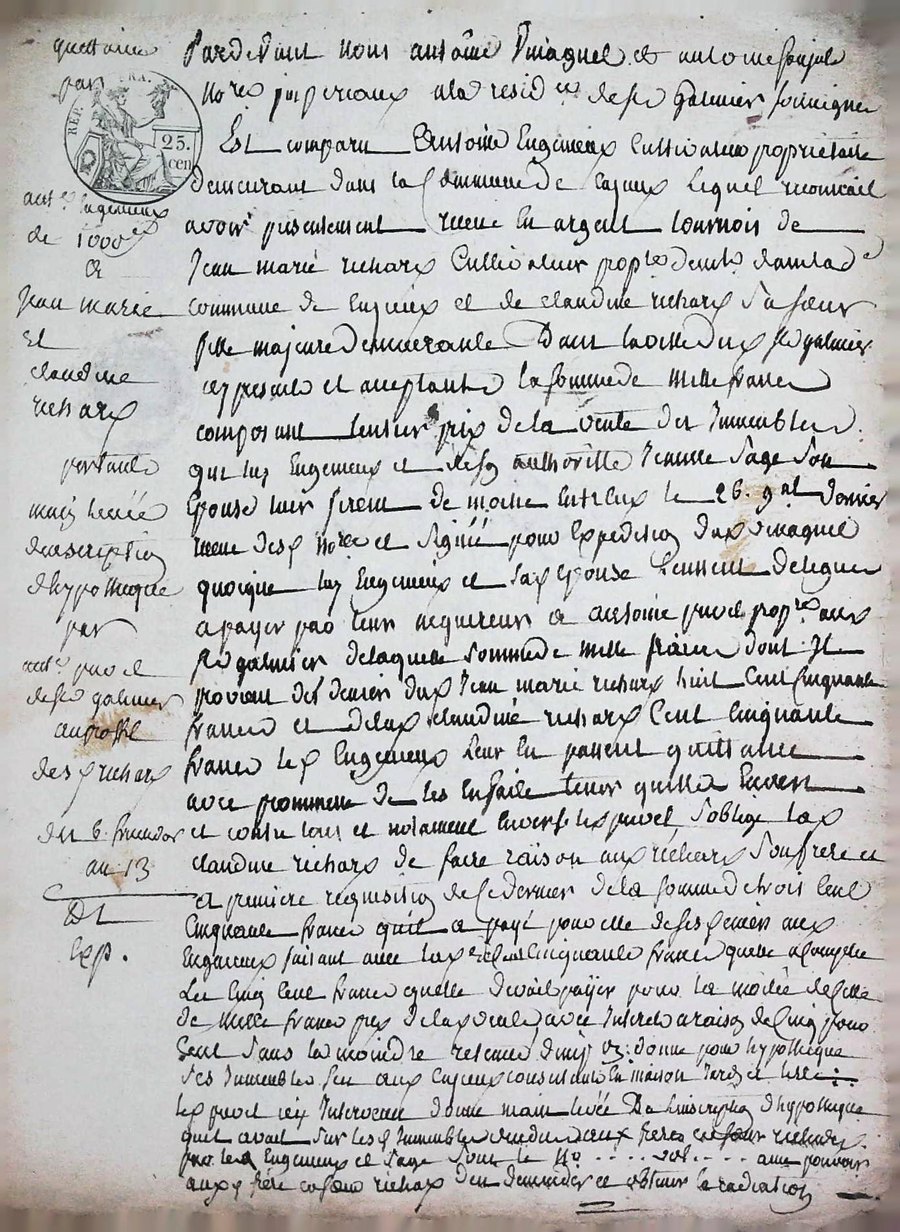 quittance
par
REP. FRA.
25.
cen
ant.e Eugenieux
de 1000 f
a
Jean marie
Et
claudine
richard
portant
main levée
d'inscription
d'hypotheque
par
ant.e
de st galmier
au profit
des d richard
du 6 fructidor
an 13
Dt
Exp.
Pardevant nous antoine et antoine
No.res imperiaux a la resid.ce de st Galmier soussignes
Est comparu Antoine Eugenieux Cultivateur proprietaire
demeurant dans la Commune de lequel reconnait
avoir presentement receu En argent tournois de
Jean marie richard Cultivateur prop.re dem.t dans lad.e
commune de et de claudine richard sa soeur
fille majeure demeurante Dans la ville dud st galmier
cy presents et acceptants la somme de mille francs
composant l'entier prix de la vente des Immeubles
que les Eugenieux et de son authorité femme Sage son
Epouse leur firent de moitié Entr'eux le 26. 9.bre dernier
receue desd no.res et signée pour Expedition dud
quoique les Eugenieux et sad epouse l'eussent deleguée
a payer par leurs acquereurs a antoine prop.re aud
st galmier de laquelle somme de mille francs dont Il
provient des deniers dud Jean marie richard huit Cent Cinquante
francs et de lad claudine richard Cent Cinquante
francs led Eugenieux leur En passent quittance
avec promesse de les En faire tenir quittes Envers
et contre tous et notament Envers led s'oblige lad
claudine richard de faire raison aud richard son frere et
a premiere requisition de ce dernier de la somme de trois Cent
Cinquante francs qu'il a payé pour elle de ses deniers aux
Eugenieux faisant avec Cent Cinquante francs quelle a comptés
Les Cinq Cent francs quelle devait payer pour la moitié de celle
de mille francs prix de lad vente avec Interets a raison de Cinq pour
Cent sans la moindre retenue donne pour hypotheque
ses Immeubles consistants En maison Jardin et
led icy Intervenu donne main levée De l'inscription d'hypotheque
qu'il avait sur lesd Immeubles vendus auxd frere et soeur richard
par led Eugenieux et Sage sous le No. . . . . . vol. . . . avec pouvoir
auxd frere et soeur richard d'en demander et obtenir la radiation